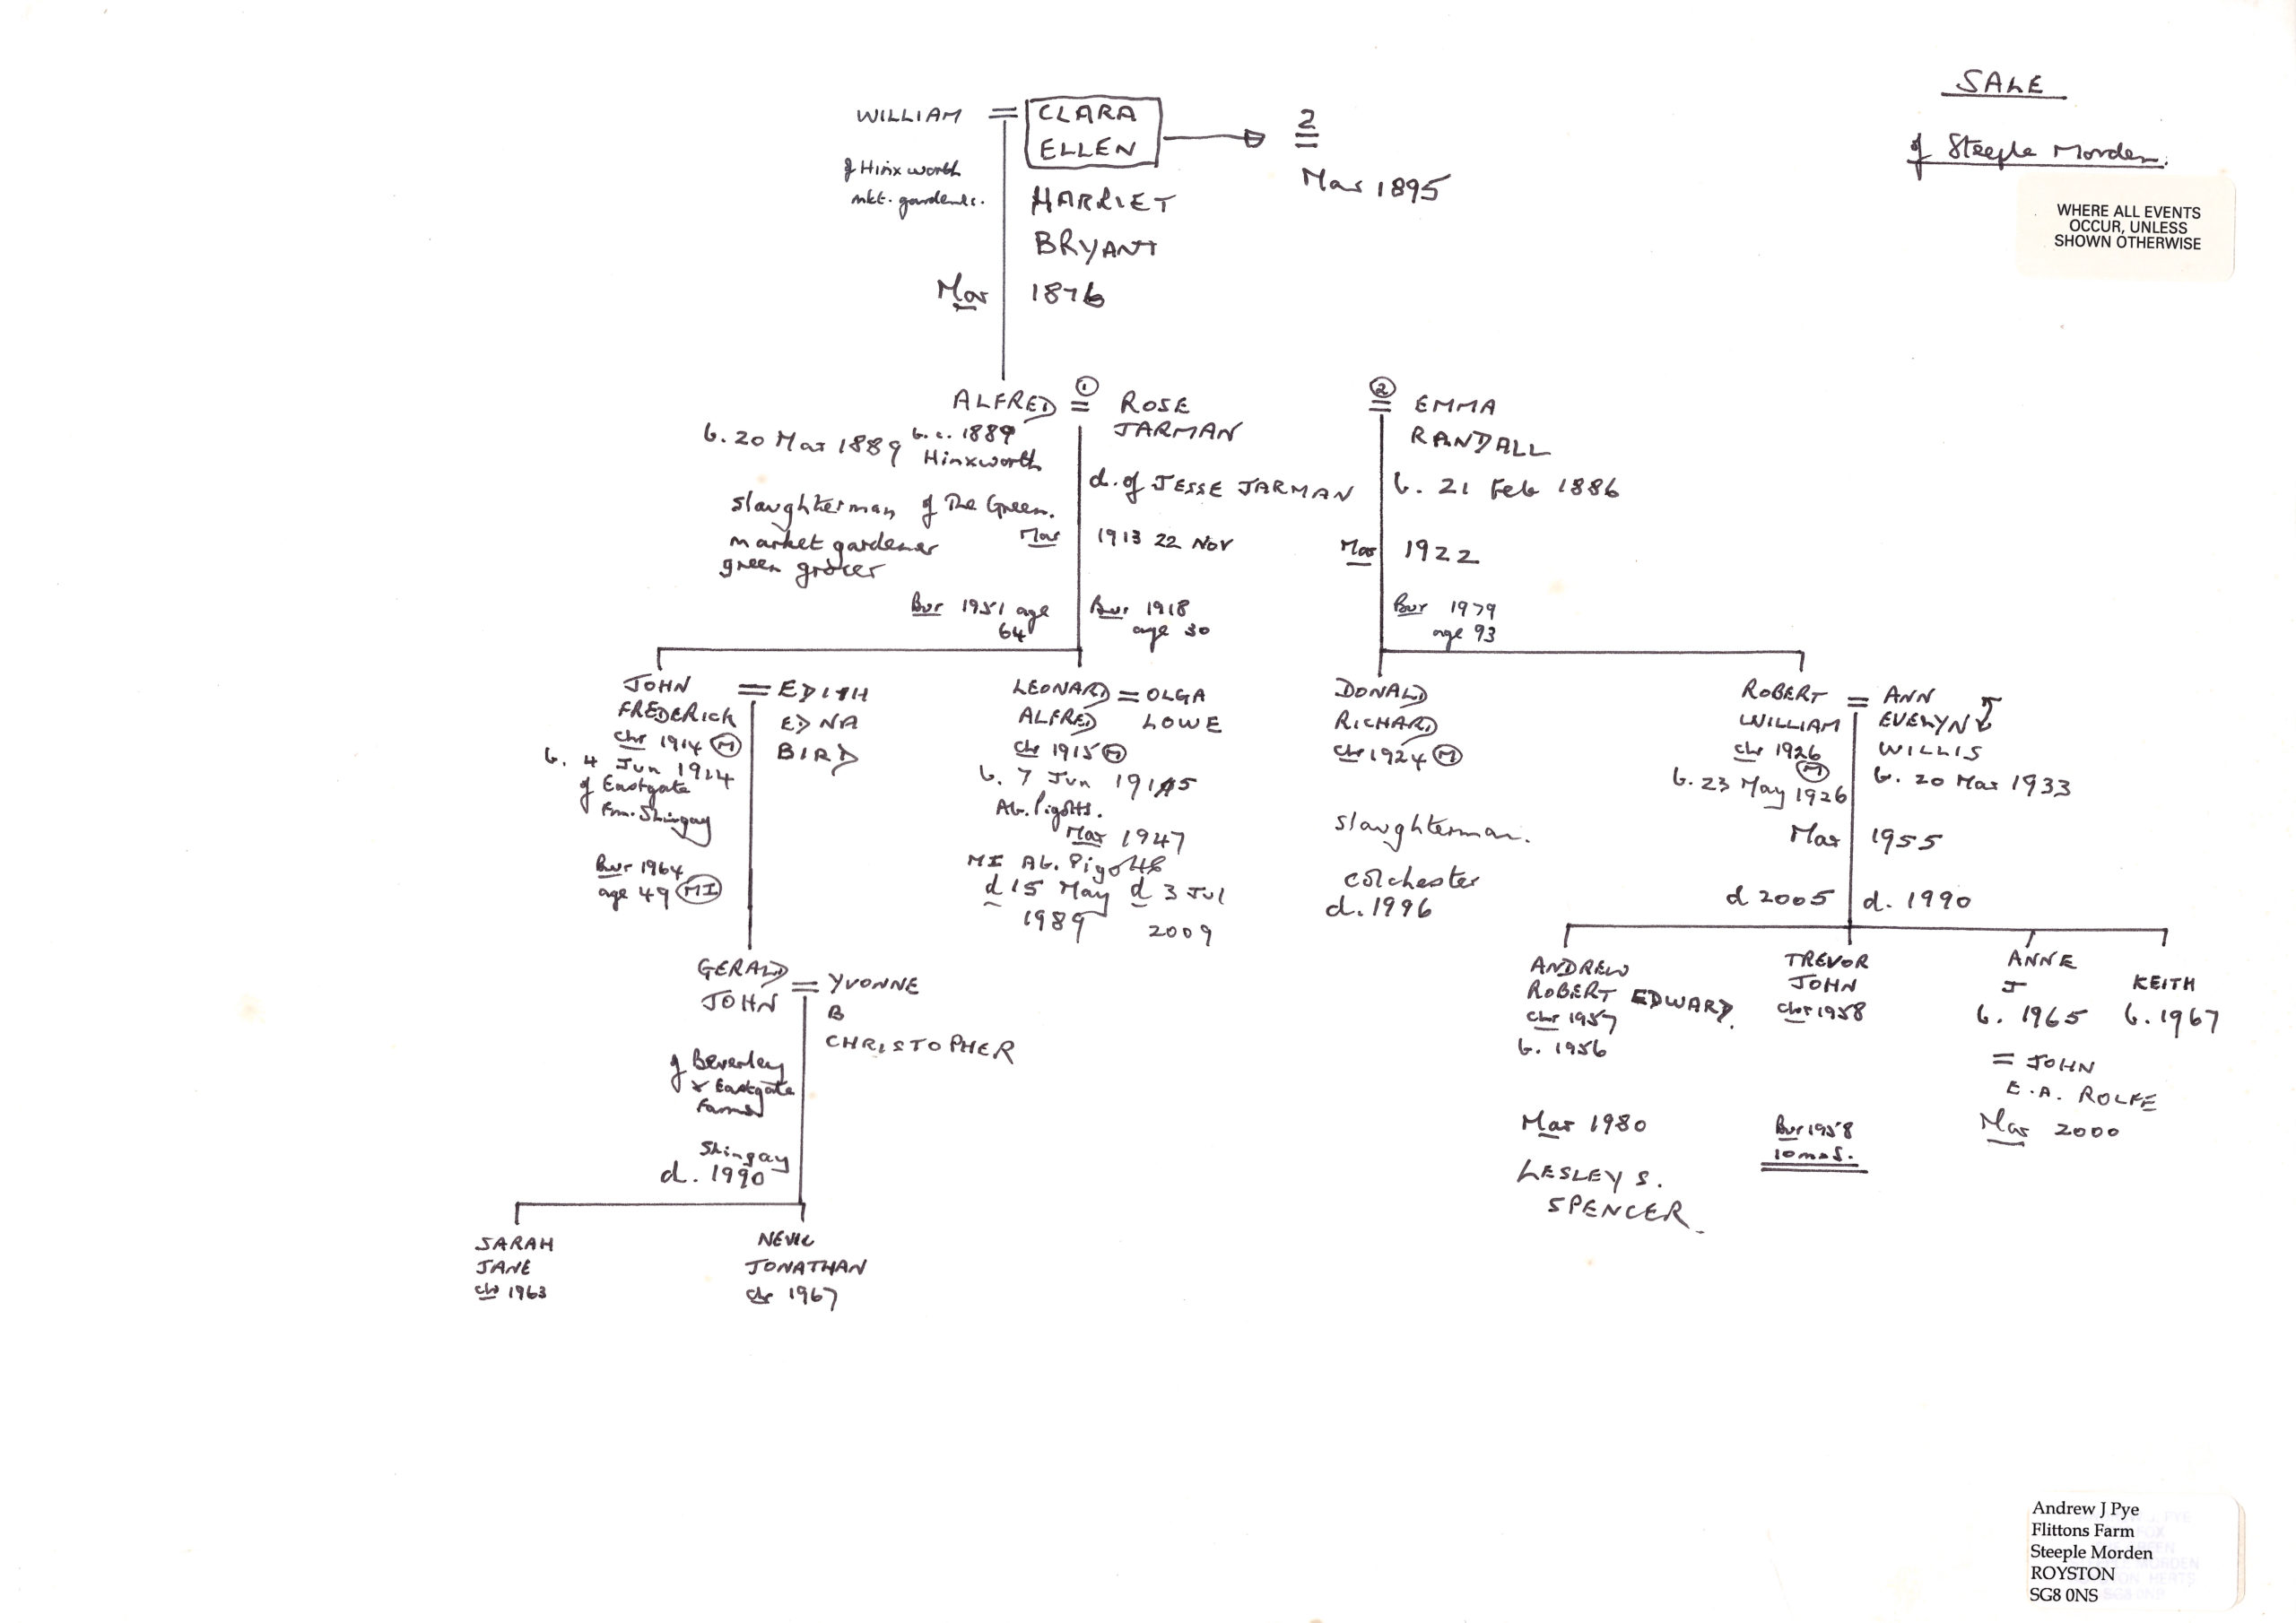 SALE
of Steeple Morden.
WHERE ALL EVENTS
OCCUR, UNLESS
SHOWN OTHERWISE
WILLIAM = CLARA
ELLEN
2
=
Mar 1895
of Hinxworth
mkt. gardener.
HARRIET
BRYANT
Mar 1876
ALFRED ① = ROSE
JARMAN
b. 20 Mar 1889
b. c. 1889
Hinxworth
d. of JESSE JARMAN
slaughterman of The Green.
market gardener
green grocer
Mar 1913 22 Nov
Bur 1951 age
64
Bur 1918
age 30
② = EMMA
RANDALL
b. 21 Feb 1886
Mar 1922
Bur 1979
age 93
JOHN = EDITH
FREDERICK EDNA
chr 1914 Ⓜ BIRD
b. 4 Jun 1914
of Eastgate
Fm. Shingay
Bur 1964
age 49 MI
LEONARD = OLGA
ALFRED LOWE
chr 1915 Ⓜ
b. 7 Jun 1915
Ab. Pigotts.
Mar 1947
MI Ab. Pigotts
d 15 May d 3 Jul
1989 2009
DONALD
RICHARD
chr 1924 Ⓜ
slaughterman.
colchester
d. 1996
ROBERT = ANN
WILLIAM EVELYN
chr 1926 WILLIS
Ⓜ
b. 23 May 1926 b. 20 Mar 1933
Mar 1955
d 2005 d. 1990
GERALD = YVONNE
JOHN B
CHRISTOPHER
of Beverley
x Eastgate
Farm
Shingay
d. 1990
ANDREW
ROBERT EDWARD.
chr 1957
b. 1956
Mar 1980
LESLEY S.
SPENCER
TREVOR
JOHN
chr 1958
Bur 1958
10 mos.
ANNE
J
b. 1965
= JOHN
E.A. ROLFE
Mar 2000
KEITH
b. 1967
SARAH
JANE
chr 1963
NEVIL
JONATHAN
chr 1967
Andrew J Pye
Flittons Farm
Steeple Morden
ROYSTON
SG8 0NS